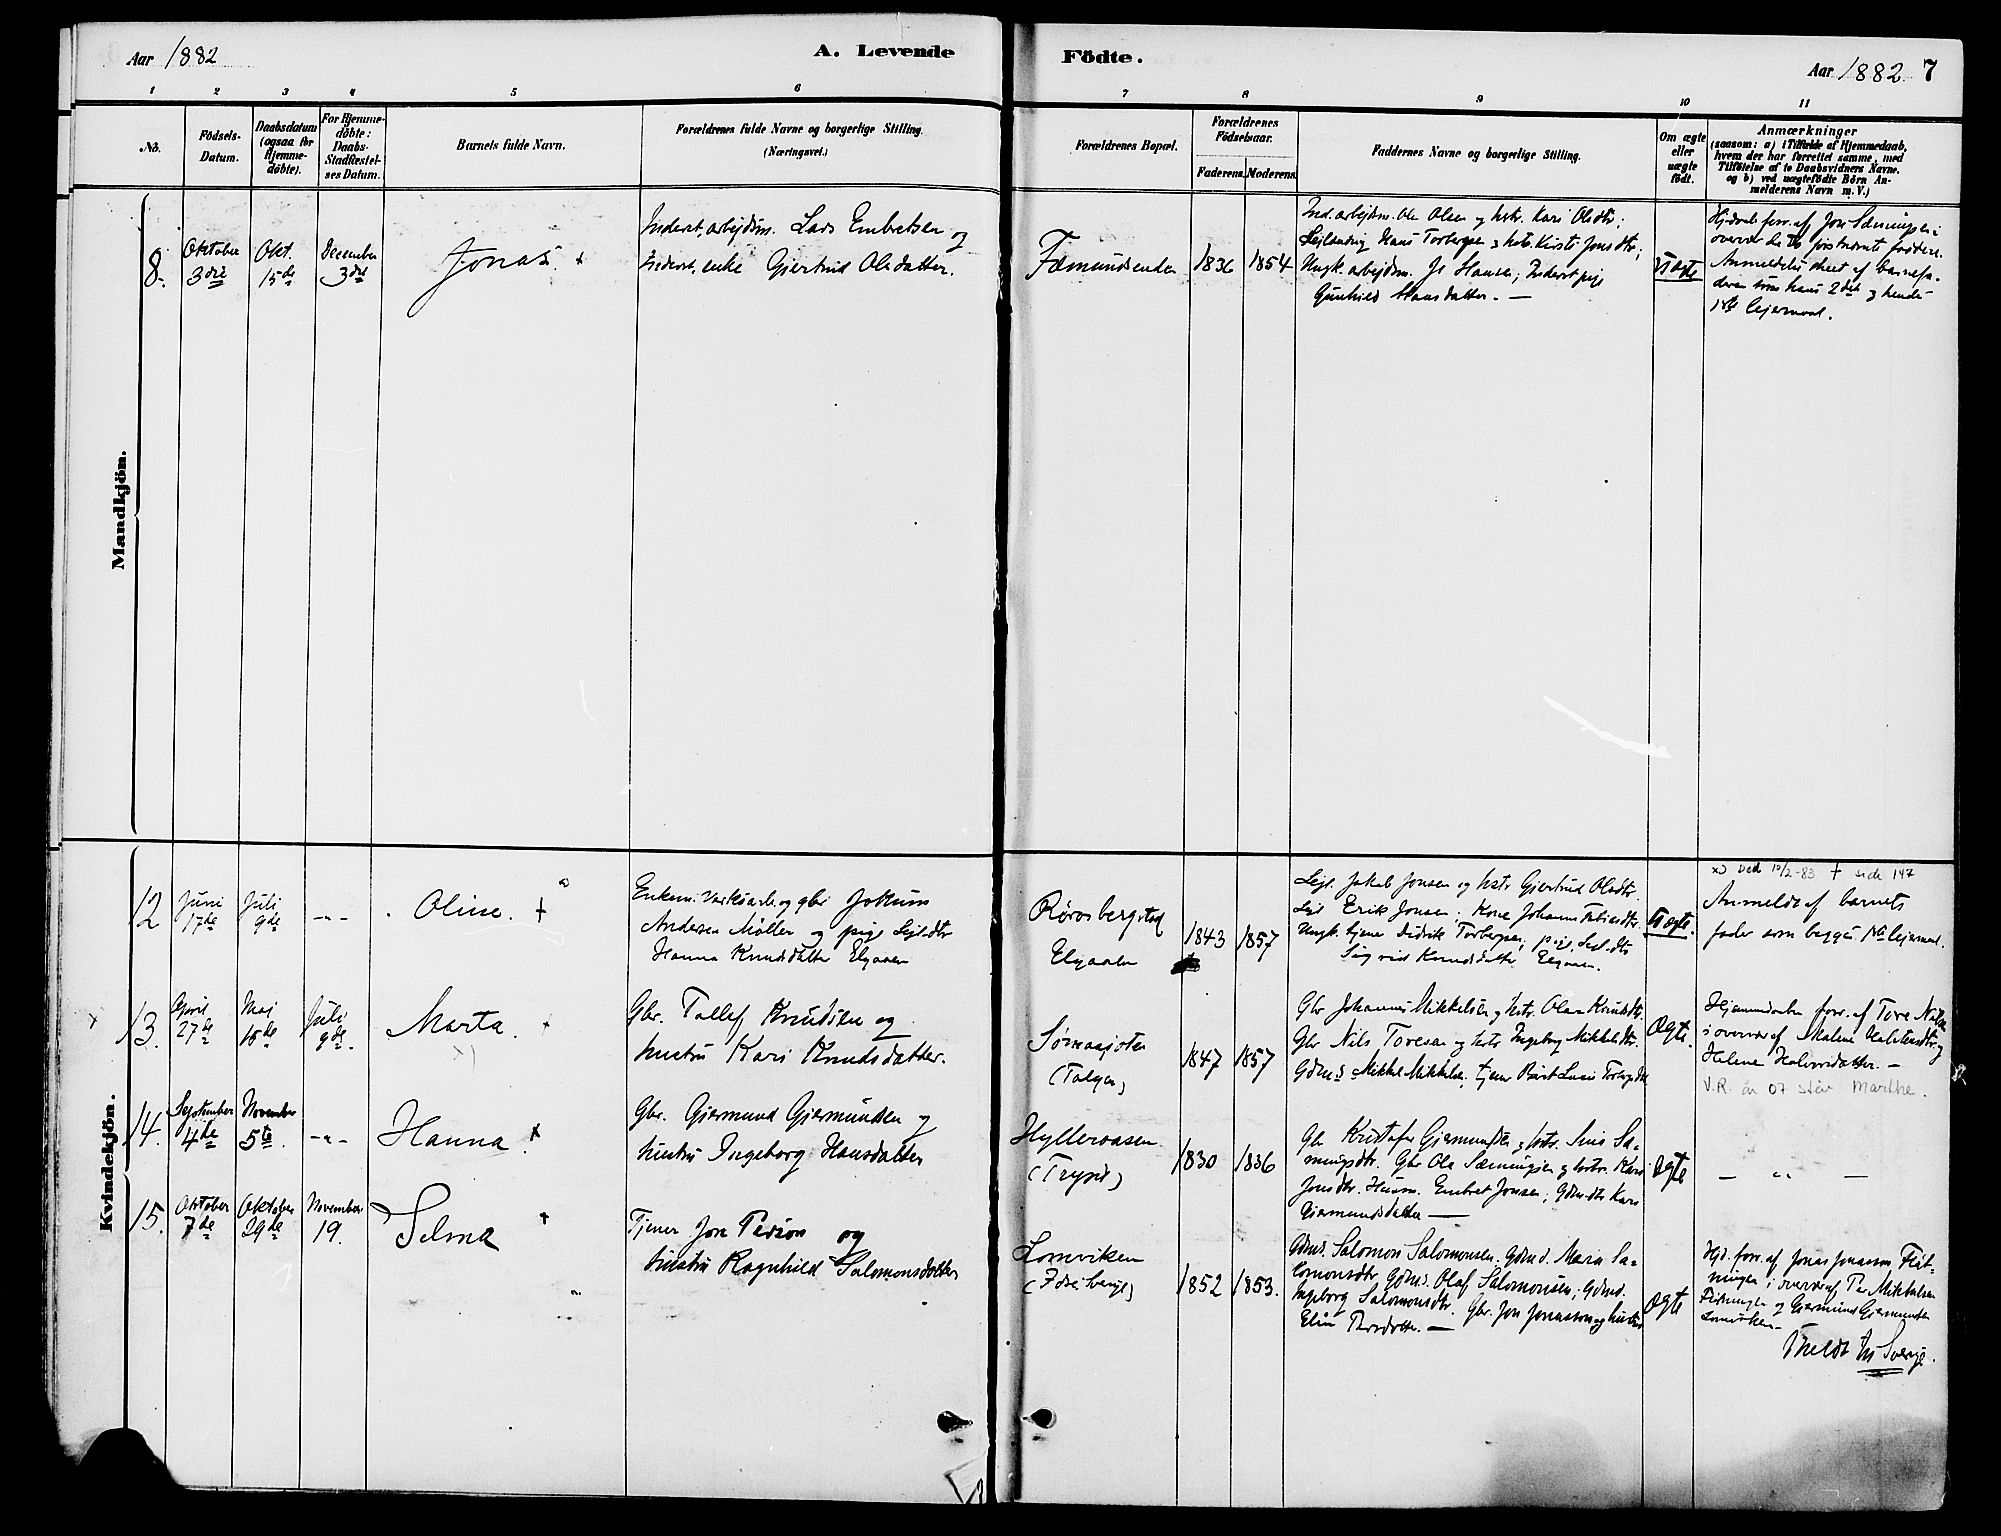 Aar 1882
A. Levende
Födte.
Aar 1882 7
1 2 3 4 5 6 7 8 9 10 11
No.
Födsels-
Datum.
Daabsdatum
(ogsaa for
Hjemme-
döbte).
For Hjemme-
döbte:
Daabs-
Stadfæstel-
ses Datum.
Barnets fulde Navn.
Forældrenes fulde Navne og borgerlige Stilling.
(Næringsvei.)
Forældrenes Bopæl.
Forældrenes
Födselsaar.
Faderens. Moderens.
Faddernes Navne og borgerlige Stilling.
Om ægte
eller
uægte
födt.
Anmærkninger
(saasom: a) i Tilfælde af Hjemmedaab,
hvem der har forrettet samme, med
Tilföielse af to Daabsvidners Navne.
og b) ved uægtefödte Börn An-
melderens Navn m. V.)
Mandkjön.
8.
Oktober
3die
Okt.
15de
December
3die
Jonas. +
Inderst, arbejdsm. Lars Embretsen og
Inderst, enke Gjertrud Olsdatter.
Fæmundsenden
1836 1854
Ind. arbejdsm. Ole Olsen og hstr. Kari Olsdtr;
Hans Torbergsen og hstr. Kirsti Jonsdtr;
Ungk. arbejdsm. Jo Hansen; Inderst pige
Gunhild Hansdatter. —
Uægte
Hjdaab forr. af Jon Sæmingsen i
overvær de to førstnævnte faddere.
Anmeldelse skeet af barnefa-
deren som hans 2det og hendes
1ste lejermaal.
Kvindekjön.
12
Juni
17de
Juli
9de
-"-
Oline. +
Enkem. og gbr Jokum
Andersen Møller og pige Lejl.dtr
Hanna Knudsdatter Elgaaen
Røros bergstad
Elgaaen
1843 1857
Lejl. Jakob Jonsen og hstr Gjertrud Olsdtr.
Lejl Erik Jonsen; Kone Johanna
Ungk. tjener Didrik Torbergsen; pige, Lejl.dtr
Sigrid Knudsdatter Elgaaen.
Uægte.
x) Død 10/2-83 + side 147
Anmeldt af barnets
fader som begges 1ste lejermaal.
x 13.
April
27de
Maj
18de
Juli
9de.
Marta. +
x)
Gbr. Tollef Knudsen og
hustru Kari Knudsdatter.
(Tolgen)
1847 1857
Gbr Johannes Mikkelsen og hstr. Olea Knudsdtr.
Gbr Nils Toresen og hstr Ingeborg Mikkelsdtr.
Gdmds Mikkel Mikkelsen; tjener
Ægte.
Hjemmedaaben forr. af Tore Nilsen
i overvær af Malene Halstensdtr. og
Helene Halvorsdatter. —
V.R. år 07 står Marthe.
14.
September
4de
November
5te.
-"-
Hanna. +
Gbr. Gjermund Gjermundsen og
hustru Ingeborg Hansdatter
Hylleraasen
(Trysil)
1830 1836
Gbr Kristofer Gjermundsen og hstr. Siris Sæ-
mingsdtr. Gbr Ola Sæmingsen og hstr. Kari
Jonsdtr. Husm. Embret Jonsen; Gdmds dtr Kari
Gjermundsdatter —
Ægte
— " —
15.
Oktober
7de
Oktober
29de
November
19.
Selma +
Tjener Jon Persson og
hustru Ragnhild Salomonsdatter
Lomviken
(Idre Sverige)
1852 1853.
Gdmds. Salomon Salomonsen. Gdmd. Maria Sa-
lomonsdtr Gdmds. Olaf Salomonsen; Gdmd.
Ingeborg Salomonsdtr. Gbr. Jon Jonasson og hustru
Elin Persdatter. —
Ægte
Hjd. forr. af Jonas Jonasson Fløt-
ningen i overvær af Per Mikkelsen
Fløtningen og Gjermund Gjermundsen
Lomviken —
Meldt til Sverige.